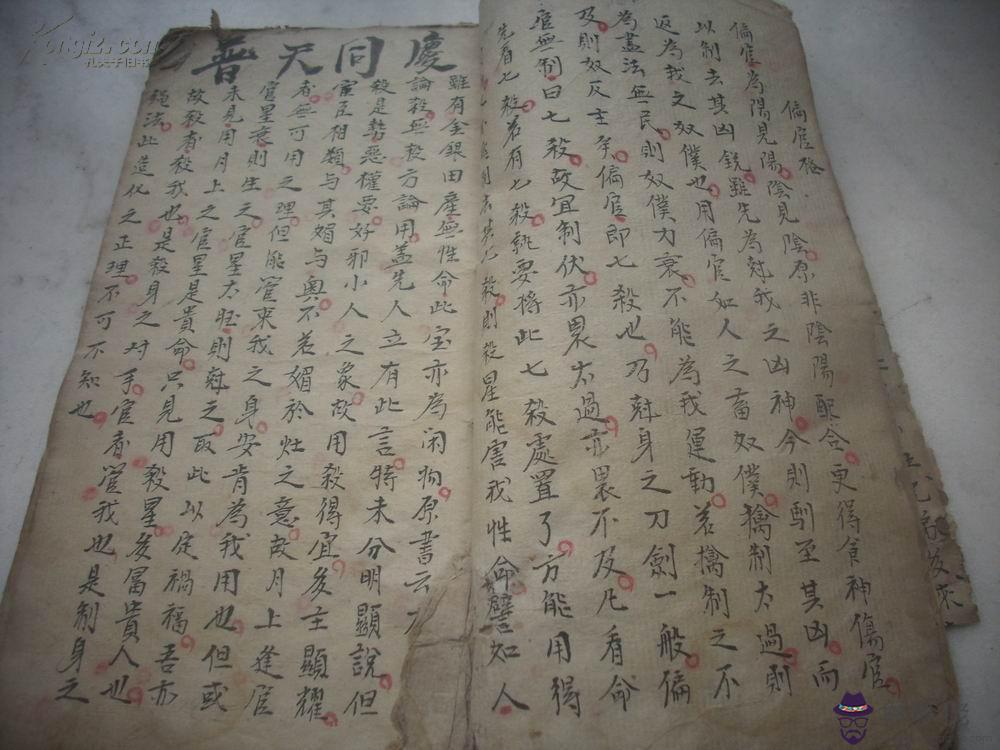 偏官格
偏官為陽見陽陰見陰原非陰陽配合更得食神傷官
以制去其凶銳雖先為尅我之凶神今則馴至其凶而
返為我之奴僕也用偏官如人之畜奴僕擒制太過則
為盡法無民則奴僕力衰不能為我運動若擒制之不
及則奴反主爭偏官即七殺也乃尅身之刀劍一般偏
官無制曰七殺故宜制伏亦畏太過亦畏不及凡看命
先看七殺若有七殺就要將此七殺處置了方能用得
殺則殺星能害我性命譬如人
慶同天普
雖有金銀田產無性命此宝亦為闲物原書云
論殺無殺方論用盖先人立有此言特未分明顯說但
殺是势惡權要好邪小人之象故用殺得宜多主顯耀
宦臣相類与其媚与奧不若媚於灶之意故月上逢官
者無可用之理但能管束我之身安肯為我用也但或
官星衰則生之官星太旺則尅之取此以定禍福吾亦
未見用月上之官星是貴命只見用殺星多富貴人也
故殺者殺我也是殺身之对手官者管我也是制身之
繩法此造化之正理不可不知也
孔夫子旧书网